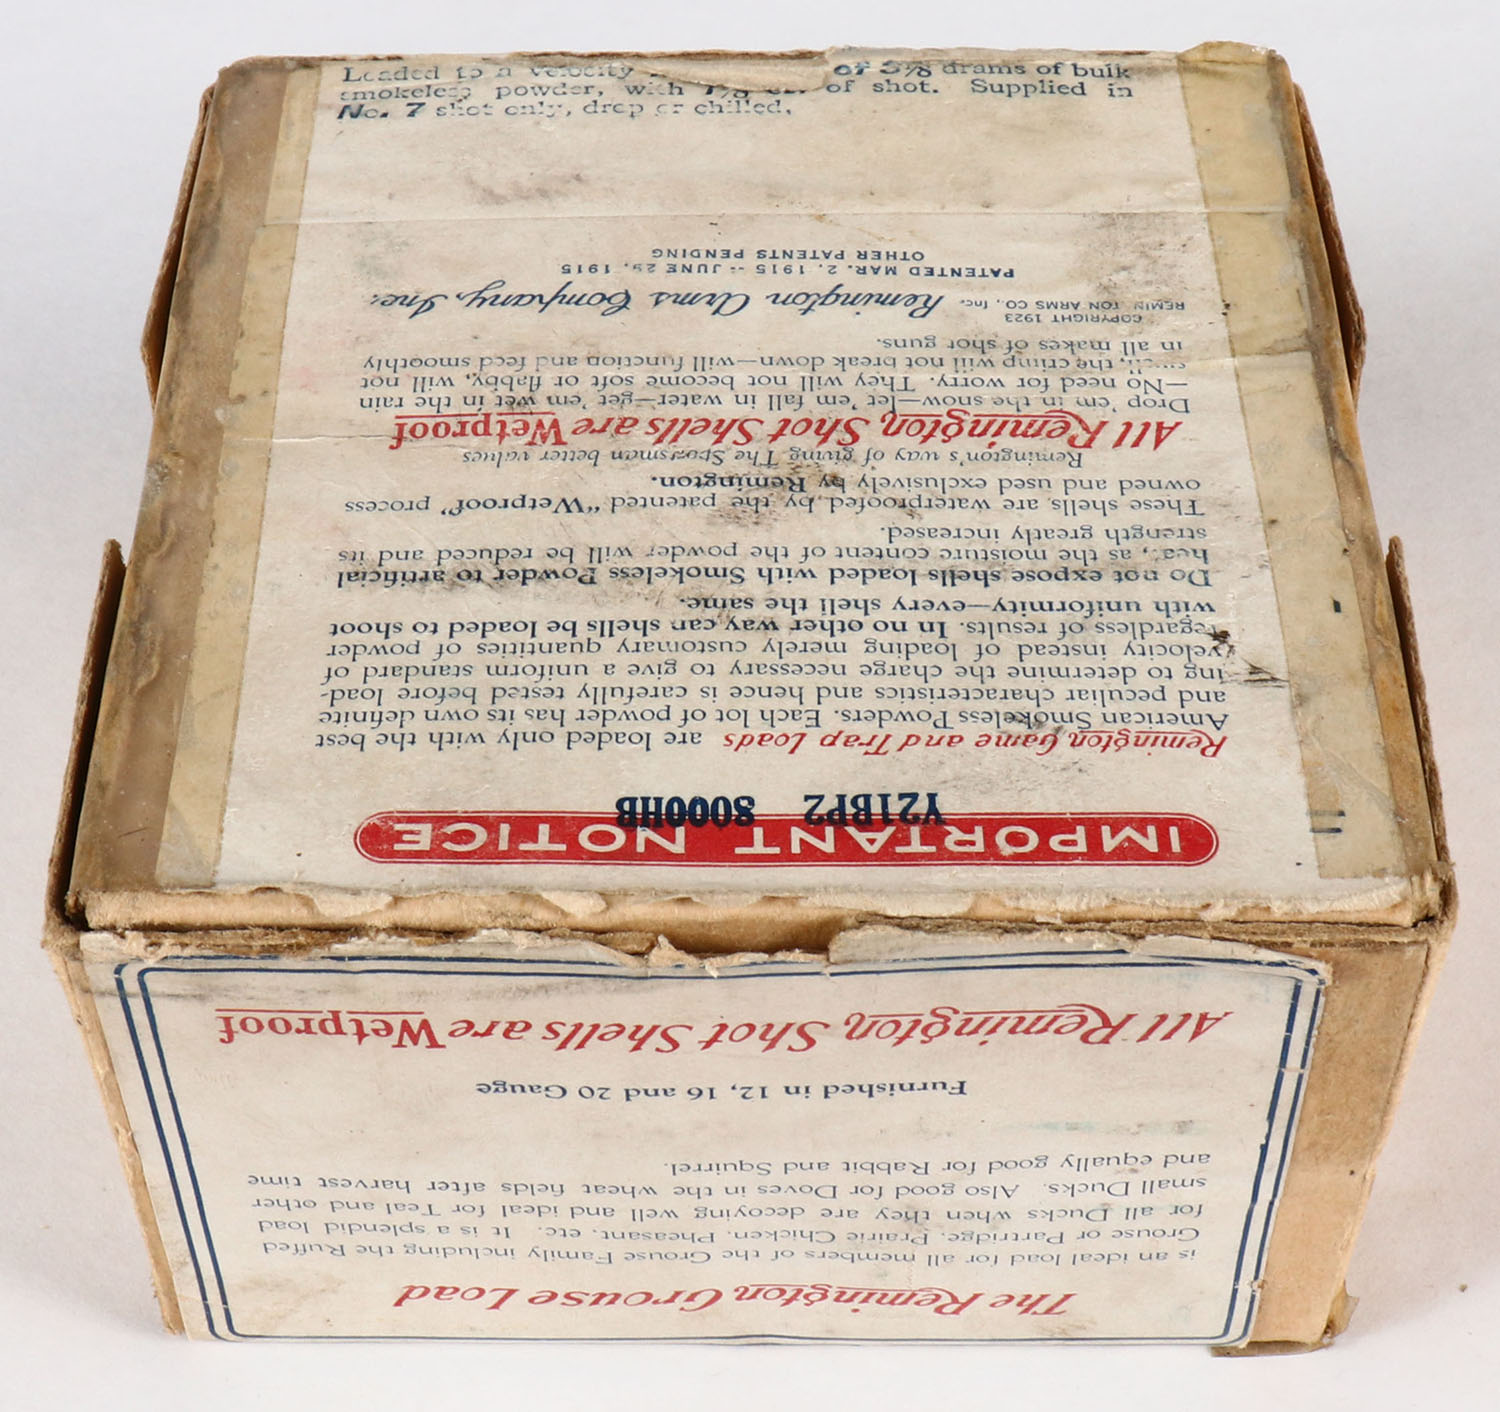 Loaded to a velocity of 3⅛ drams of bulk
smokeless powder, with 1⅛ oz. of shot. Supplied in
No. 7 shot only, drop or chilled.
IMPORTANT NOTICE
Y21BP2 8000HB
Remington Game and Trap Loads are loaded only with the best
American Smokeless Powders. Each lot of powder has its own definite
and peculiar characteristics and hence is carefully tested before load-
ing to determine the charge necessary to give a uniform standard of
velocity instead of loading merely customary quantities of powder
regardless of results. In no other way can shells be loaded to shoot
with uniformity—every shell the same.
Do not expose shells loaded with Smokeless Powder to artificial
heat, as the moisture content of the powder will be reduced and its
strength greatly increased.
These shells are waterproofed by the patented "Wetproof" process
owned and used exclusively by Remington.
Remington's way of giving The Sportsman better values
All Remington Shot Shells are Wetproof
Drop 'em in the snow—let 'em fall in water—get 'em wet in the rain
—No need for worry. They will not become soft or flabby, will not
swell, the crimp will not break down—will function and feed smoothly
in all makes of shot guns.
COPYRIGHT 1923
REMINGTON ARMS CO., Inc. Remington Arms Company, Inc.
PATENTED MAR. 2, 1915 -- JUNE 29, 1915
OTHER PATENTS PENDING
The Remington Grouse Load
is an ideal load for all members of the Grouse Family including the Ruffed
Grouse or Partridge, Prairie Chicken, Pheasant, etc. It is a splendid load
for all Ducks when they are decoying well and ideal for Teal and other
small Ducks. Also good for Doves in the wheat fields after harvest time
and equally good for Rabbit and Squirrel.
Furnished in 12, 16 and 20 Gauge
All Remington Shot Shells are Wetproof